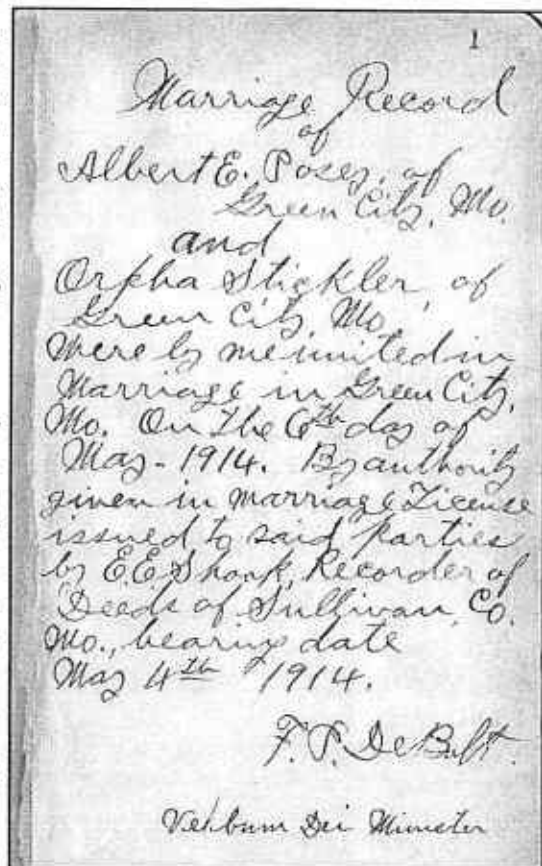 1
Marriage Record
of
Albert E. Posey, of
Green City, Mo.
and
Orpha Stickler, of
Green City, Mo.
Were by me united in
Marriage in Green City,
Mo. On The 6th day of
May - 1914. By authority
given in Marriage License
issued to said parties
by E.E. Shook, Recorder of
Deeds of Sullivan Co.
Mo., bearing date
May 4th 1914.
F. P. DeBolt.
Verbum Dei Minister